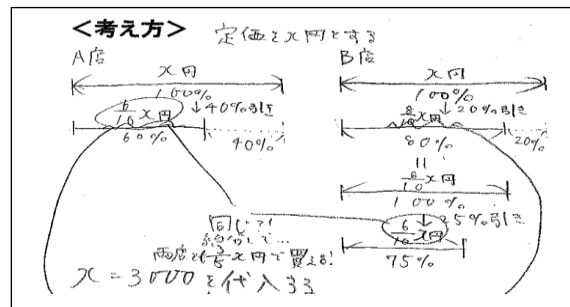 <考え方> 定価をx円とする
A店
x円
100%
6/10 x円 ↓40%引き
60% 40%
B店
x円
100%
8/10 x円 ↓20%引き
80% 20%
=
8/10 x円
100%
↓25%引き
6/10 x円
75%
同じ?!
約分して...
両店とも3/5 x円で買える!
x=3000を代入する